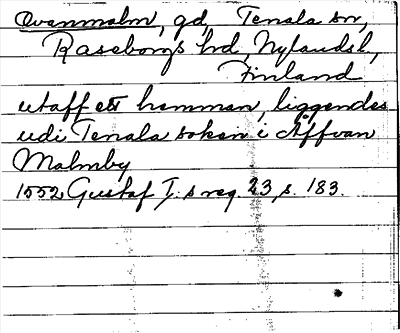 Ovanmalm, gd, Tenala sn,
Raseborgs hd, Nylandsl.,
Finland
utaff ett hemman, liggendes
udi Tenala soken i Åffvan
Malmby
1552 Gustaf I:s reg. 23, s. 183.